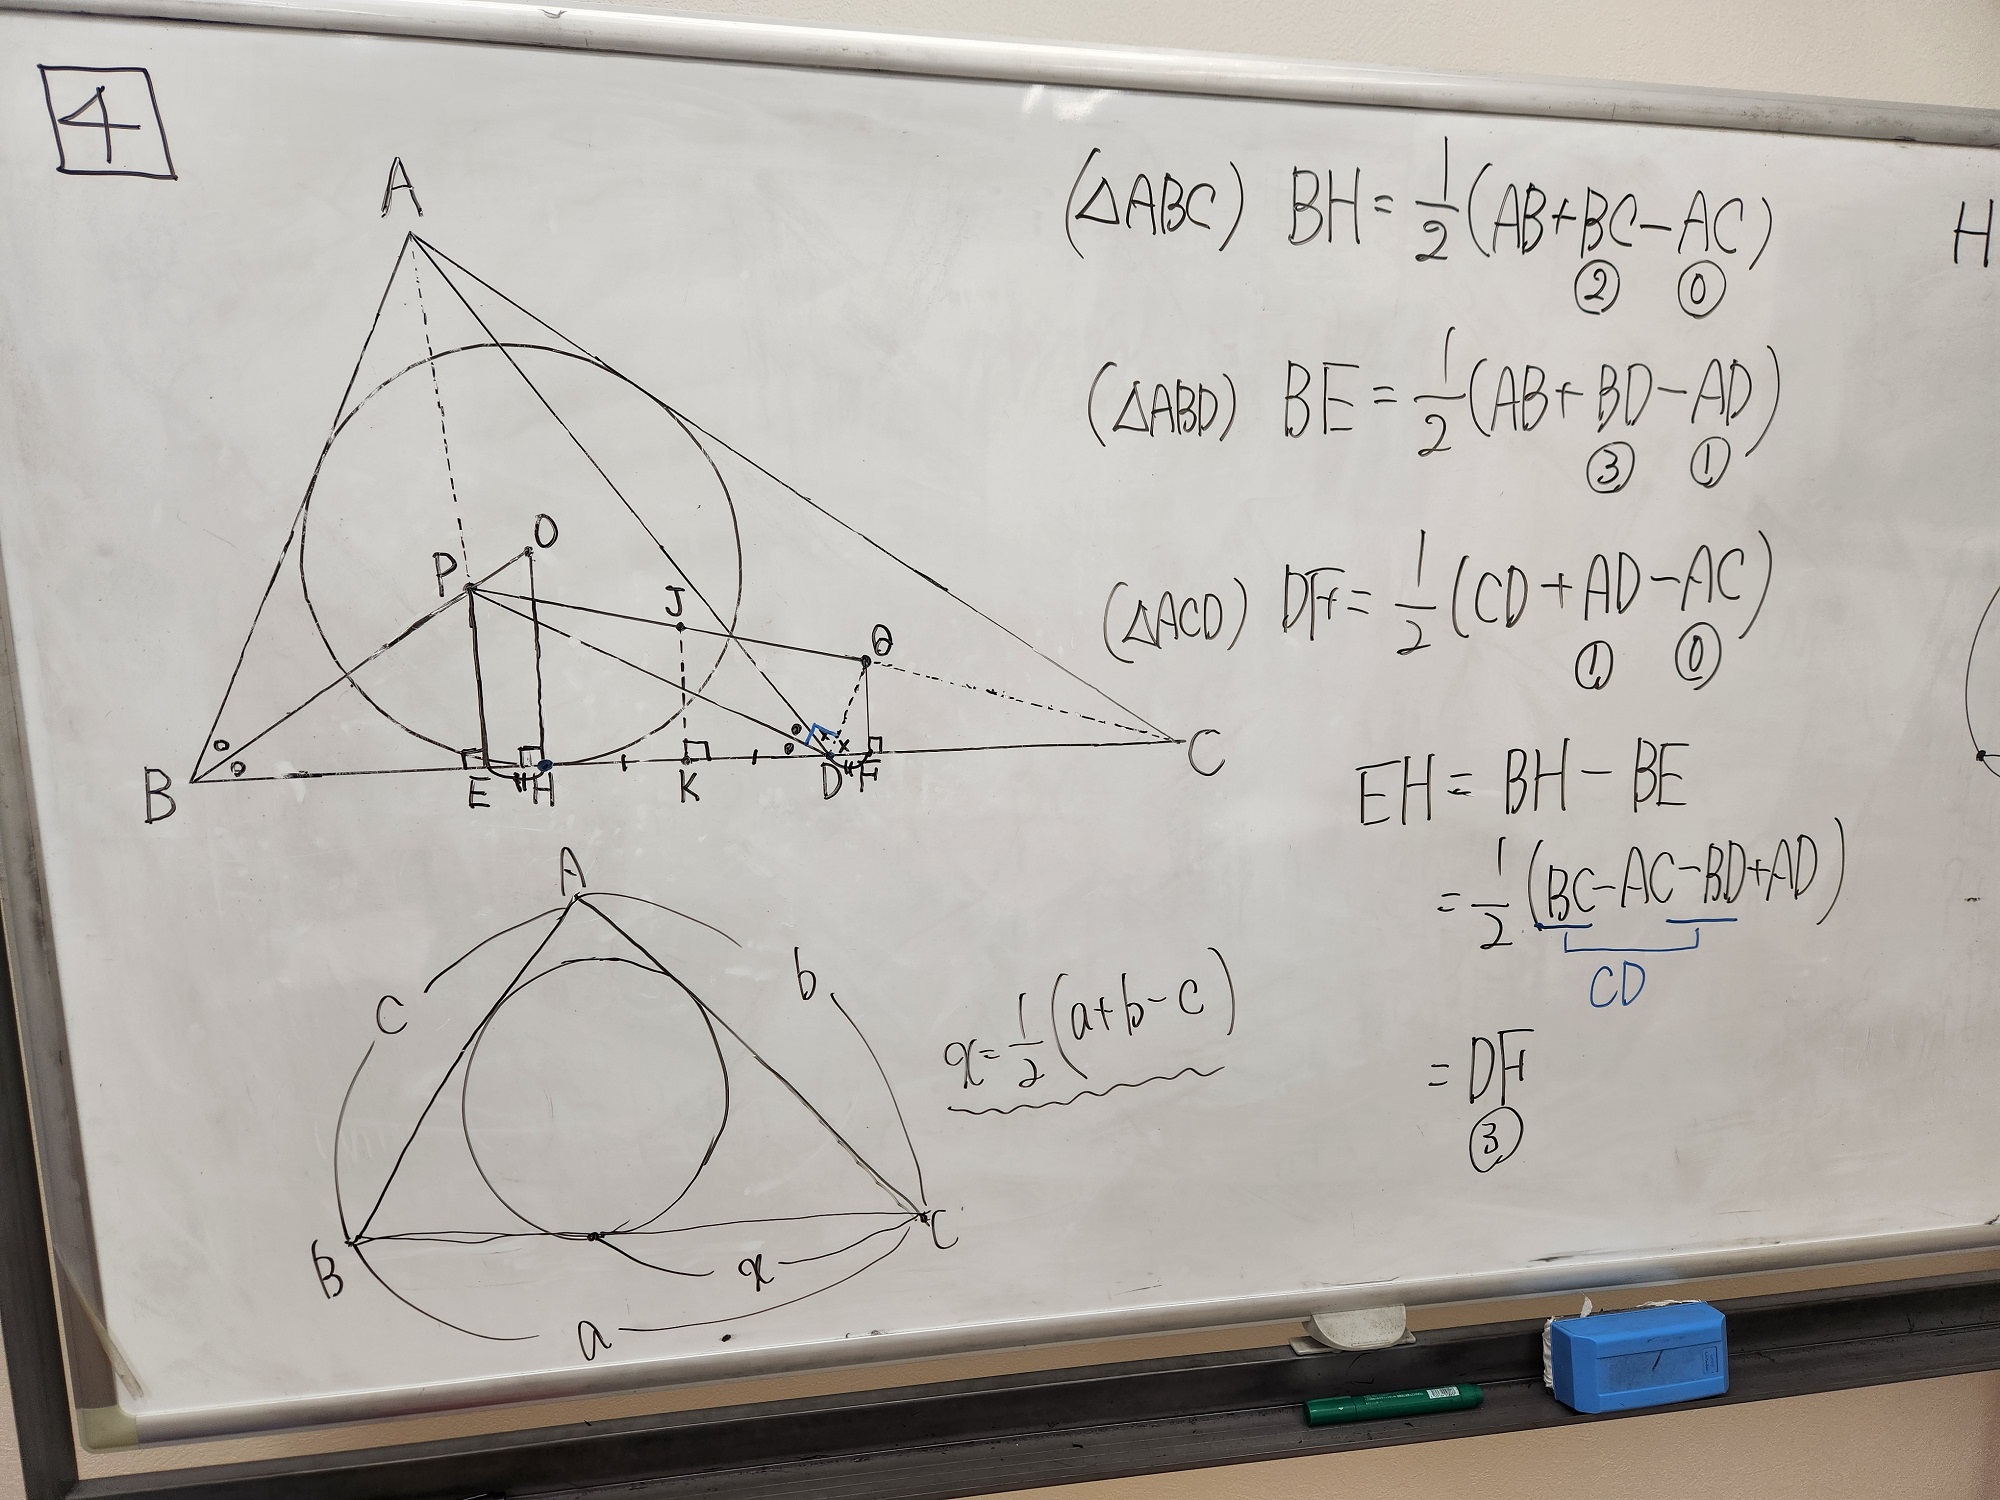 4
A
O
P
J
Q
B
E
H
K
D
F
C
A
c
b
B
x
C
a
x=1/2(a+b-c)
(△ABC) BH=1/2(AB+BC-AC)
② ⓪
(△ABD) BE=1/2(AB+BD-AD)
③ ①
(△ACD) DF=1/2(CD+AD-AC)
① ⓪
EH=BH-BE
=1/2(BC-AC-BD+AD)
CD
=DF
③
H